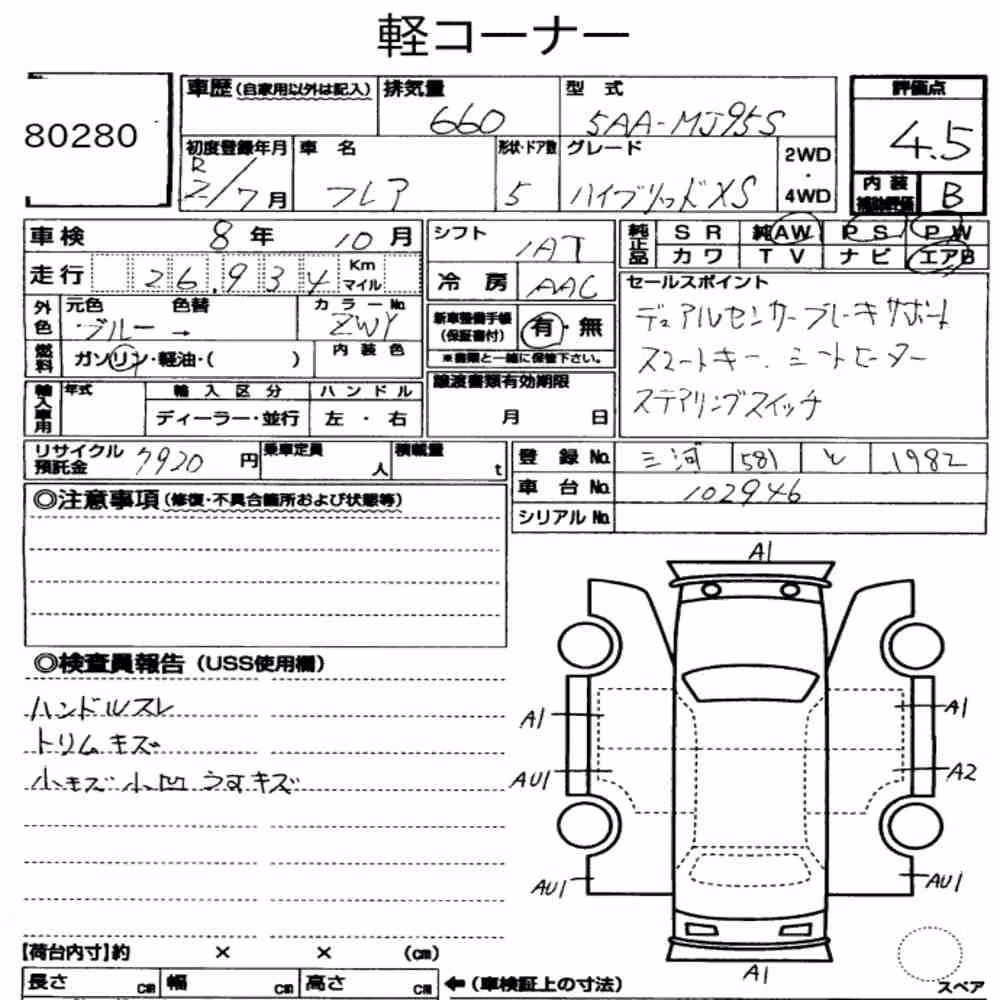 軽コーナー
80280
車歴 (自家用以外は記入) 排気量 660 型式 5AA-MJ95S
評価点 4.5
内装補助評価 B
初度登録年月 R2/7月 車名 フレア 形状・ドア数 5 グレード ハイブリッドXS 2WD・4WD
車検 8年 10月
走行 26,934 Km マイル
外色 元色 ブルー → 色替 カラーNo. ZWY
燃料 ガソリン・軽油・( ) 内装色
輸入車用 年式 輸入区分 ディーラー・並行 ハンドル 左・右
シフト IAT
冷房 AAC
新車整備手帳 (保証書付) 有・無
※書類と一緒に保管下さい。
譲渡書類有効期限
月 日
純正品 SR 純AW PS PW
カワ TV ナビ エアB
セールスポイント
デュアルセンサーブレーキサポート
スマートキー．シートヒーター
ステアリングスイッチ
リサイクル預託金 7920円 乗車定員 人 積載量 t
登録No. 三河 581 と 1982
車台No. 102946
シリアルNo.
◎注意事項 (修復・不具合箇所および状態等)
◎検査員報告 (USS使用欄)
ハンドルスレ
トリムキズ
小キズ 小凹 うすキズ
A1
A1 A1
AU1 A2
AU1 AU1
A1
スペア
【荷台内寸】約 × × (cm)
長さ cm 幅 cm 高さ cm ←(車検証上の寸法)